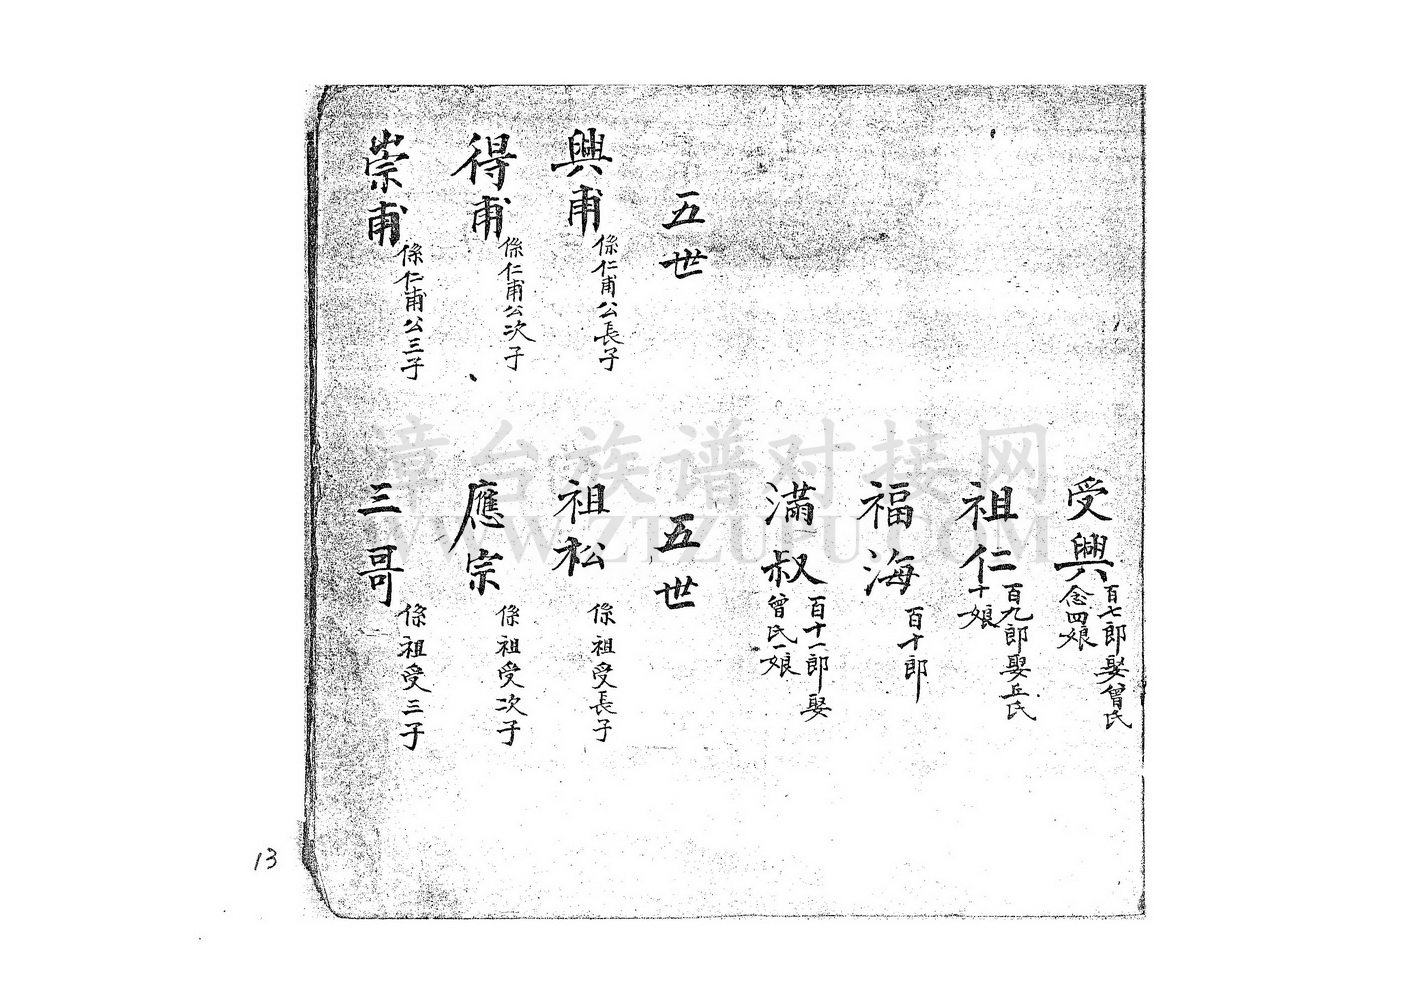 五世
興甫 係仁甫公長子
得甫 係仁甫公次子
崇甫 係仁甫公三子
受興 百七郎娶曾氏念四娘
祖仁 百九郎娶丘氏十娘
福海 百十郎
滿叔 百十一郎娶曾氏一娘
五世
祖松 係祖受長子
應宗 係祖受次子
三哥 係祖受三子
13
漳台族谱对接网
WWW.ZTZUPU.COM